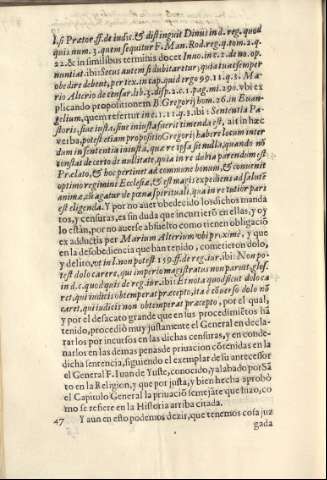 l. si Prætor ff. de iudis. & distinguit Dinus in d. reg. quod
quis num. 3. quem sequitur F. Man. Rod. reg. q. tom. 2. q.
22. & in similibus terminis docet Inno. in c. 2. de no. op.
nuntiat. ibi: Secus autem si dubitaretur, quia tunc semper
obedire debent, per tex. in cap. quid ergo 99. 11. q. 3. Ma-
rio Alterio de censur. lib. 3. disp. 2. c. 1. pag. mi. 290. vbi ex
plicando propositionem B. Gregorij hom. 26. in Euan-
gelium, quem refertur in c. 1. 11. q. 3. ibi: Sententia Pa-
storis, siue iusta, siue iniusta fuerit timenda est, ait in hæc
verba, potest etiam propositio Gregorij habere locum inter
dum in sententia iniusta, quæ re ipsa sit nulla, quando nõ
constat de certo de nullitate, quia in re dubia parendum est
Prælato, & hoc pertinet ad commune bonum, & conuenit
optimo regimini Ecclesiæ, & est magis expediens ad salutẽ
animæ, cũ agatur de pœna spirituali, qua in re tutior pars
est eligenda. Y por no auer obedecido los dichos manda
tos, y censuras, es sin duda que incurrierõ en ellas, y oy
lo están, por no auerse absuelto como tienen obligaciõ
ex adductis per Marium Alterium vbi proximè, y que
en la desobediencia que han tenido, cometieron dolo,
y delito, vt in l. non potest 159. ff. de reg. iur. ibi: Non po-
test dolo carere, qui imperio magistratus non paruit, glos.
in d. c. quod quis de reg. iur. ibi: Et nota quod sicut dolo ca
ret, qui iudicis obtemperat præcepto, ita è cõuerso dolo nõ
caret, qui iudicis non obtemperat præcepto, por el qual,
y por el desacato grande que en sus procedimiẽtos hã
tenido, procediò muy justamente el General en decla-
rarlos por incursos en las dichas censuras, y en conde-
narlos en las demas penas de priuacion cõtenidas en la
dicha sentencia, siguiendo el exemplar de su antecessor
el General F. Iuan de Yuste, conocido, y alabado por Sã
to en la Religion, y que por justa, y bien hecha aprobò
el Capitulo General la priuaciõ semejãte que hizo, co
mo se refiere en la Historia arriba citada.
47 Y aun en esto podemos dezir, que tenemos cosa juz
gada